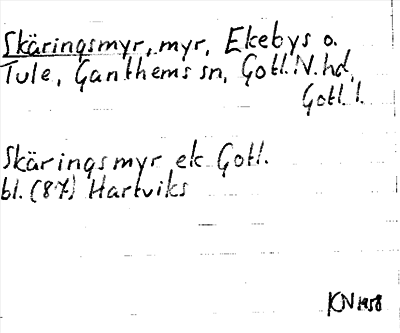 Skäringsmyr, myr, Ekebys o.
Tule, Ganthems sn, Gotl. N. hd,
Gotl. l.
Skäringsmyr ek Gotl.
bl. (87) Hartviks
KN 1958